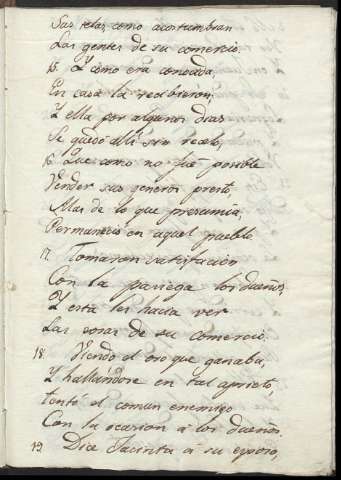 Sus telas, como acostumbran
Las gentes de su comercio
15. Y como era conocada,
En casa la recibieron,
Y ella por algunos dias
Se quedó allí sin recelo,
16. Que como no fué posible
Vender sus generos presto,
Mas de lo que presumia,
Permaneció en aquel pueblo
17. Tomaron satisfacion
Con la pasiega los dueños,
Y esta les hacia ver
Las cosas de su comercio.
18. Viendo el oro que ganaba,
Y hallándose en tal aprieto,
tentó el comun enemigo
Con la ocasion á los dueños.
19. Dice Jacinta á su esposo,